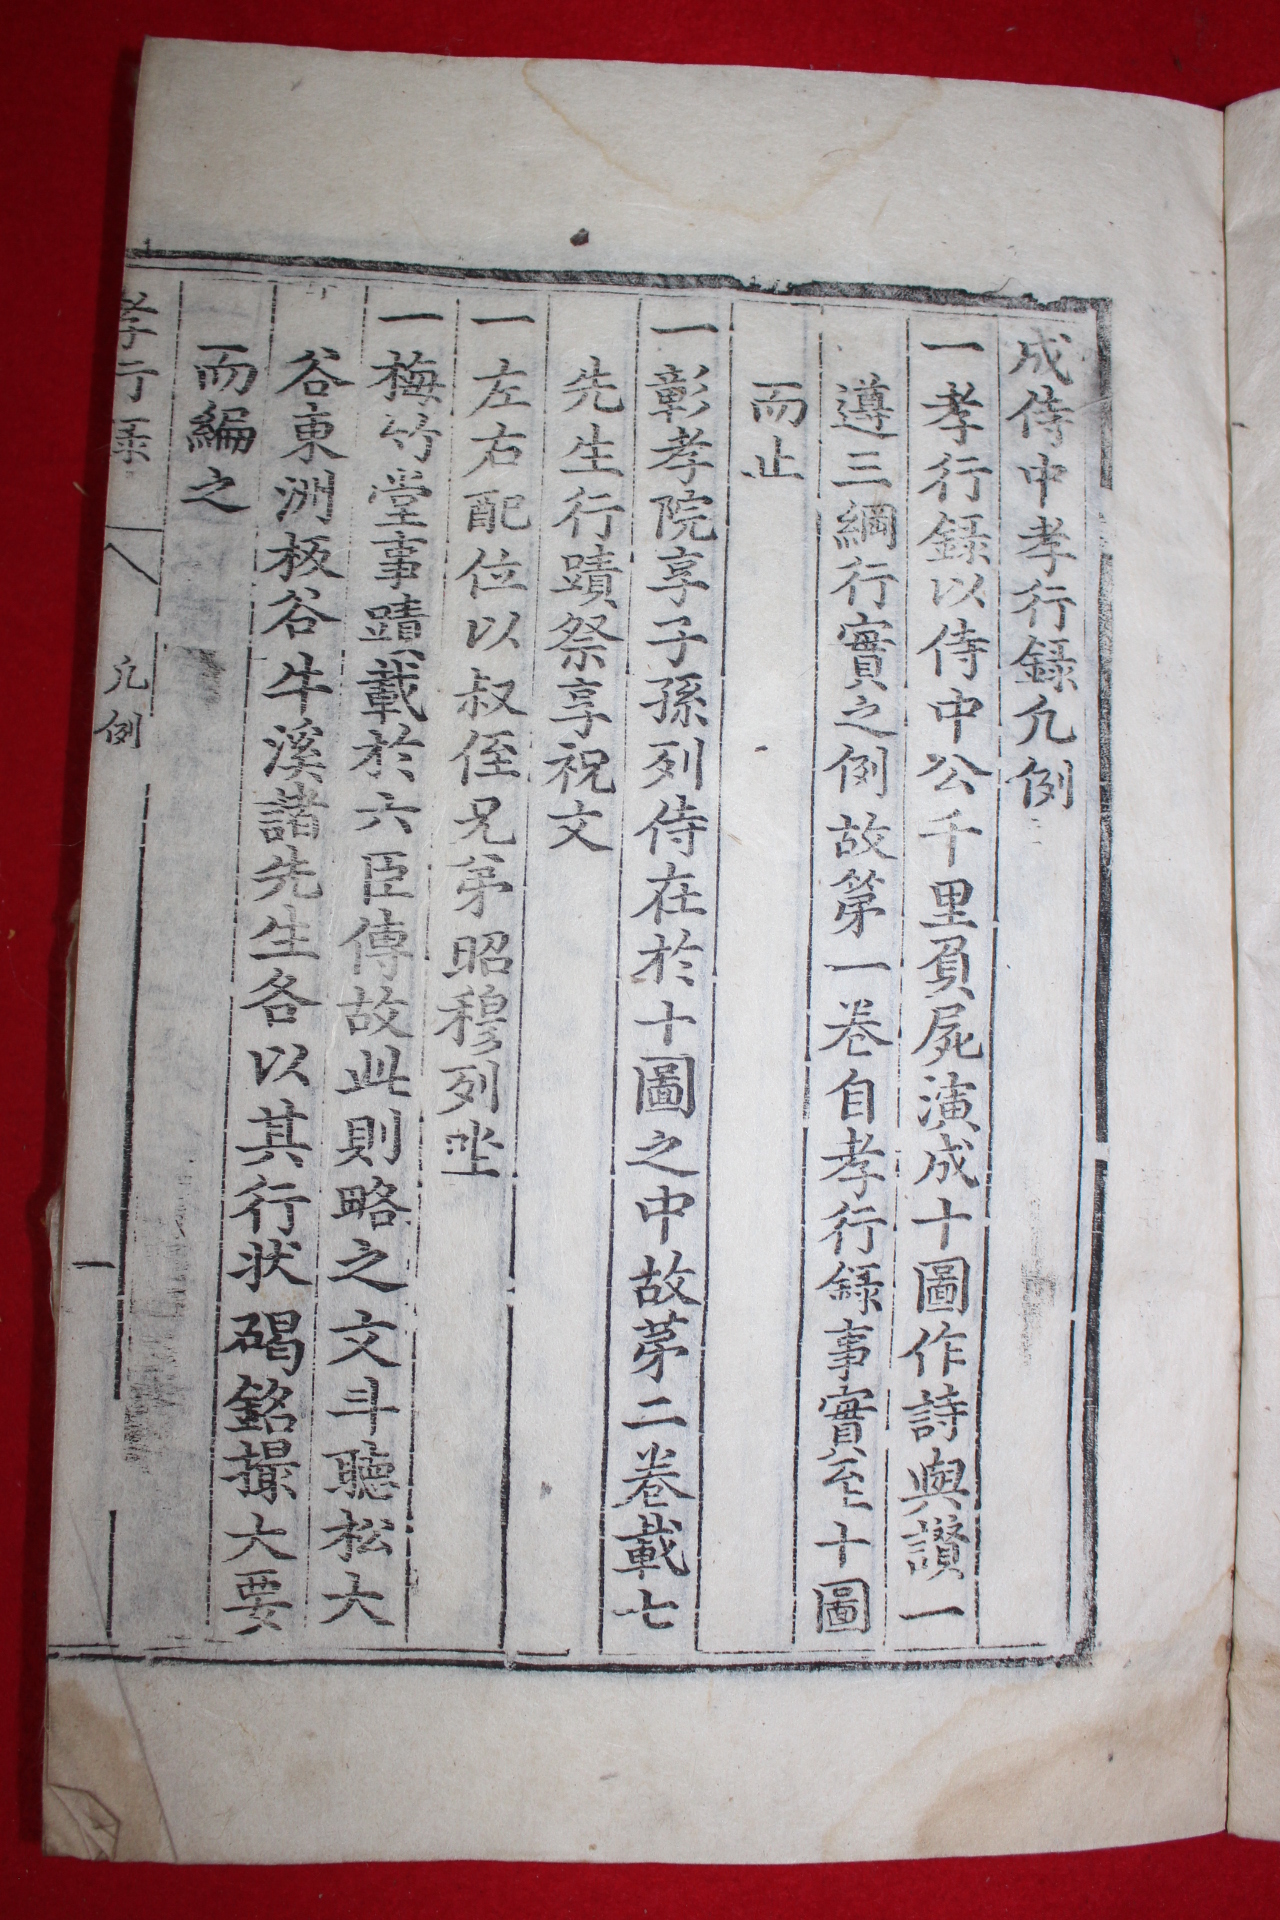 成侍中孝行錄凡例
一孝行錄以侍中公千里負屍演成十圖作詩與讃一
遵三綱行實之例故第一卷自孝行錄事實至十圖
而止
一彰孝院享子孫列侍在於十圖之中故苐二卷載七
先生行蹟祭享祝文
一左右配位以叔侄兄弟昭穆列坐
一梅竹堂事蹟載於六臣傳故此則略之文斗聽松大
谷東洲板谷牛溪諸先生各以其行狀碣銘撮大要
而編之
孝行錄
凡例
一